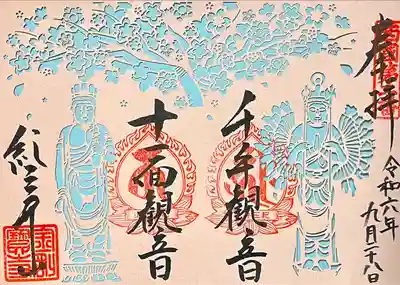 奉拝
令和六年
九月二十八日
千手観音
十一面観音
紀三井寺